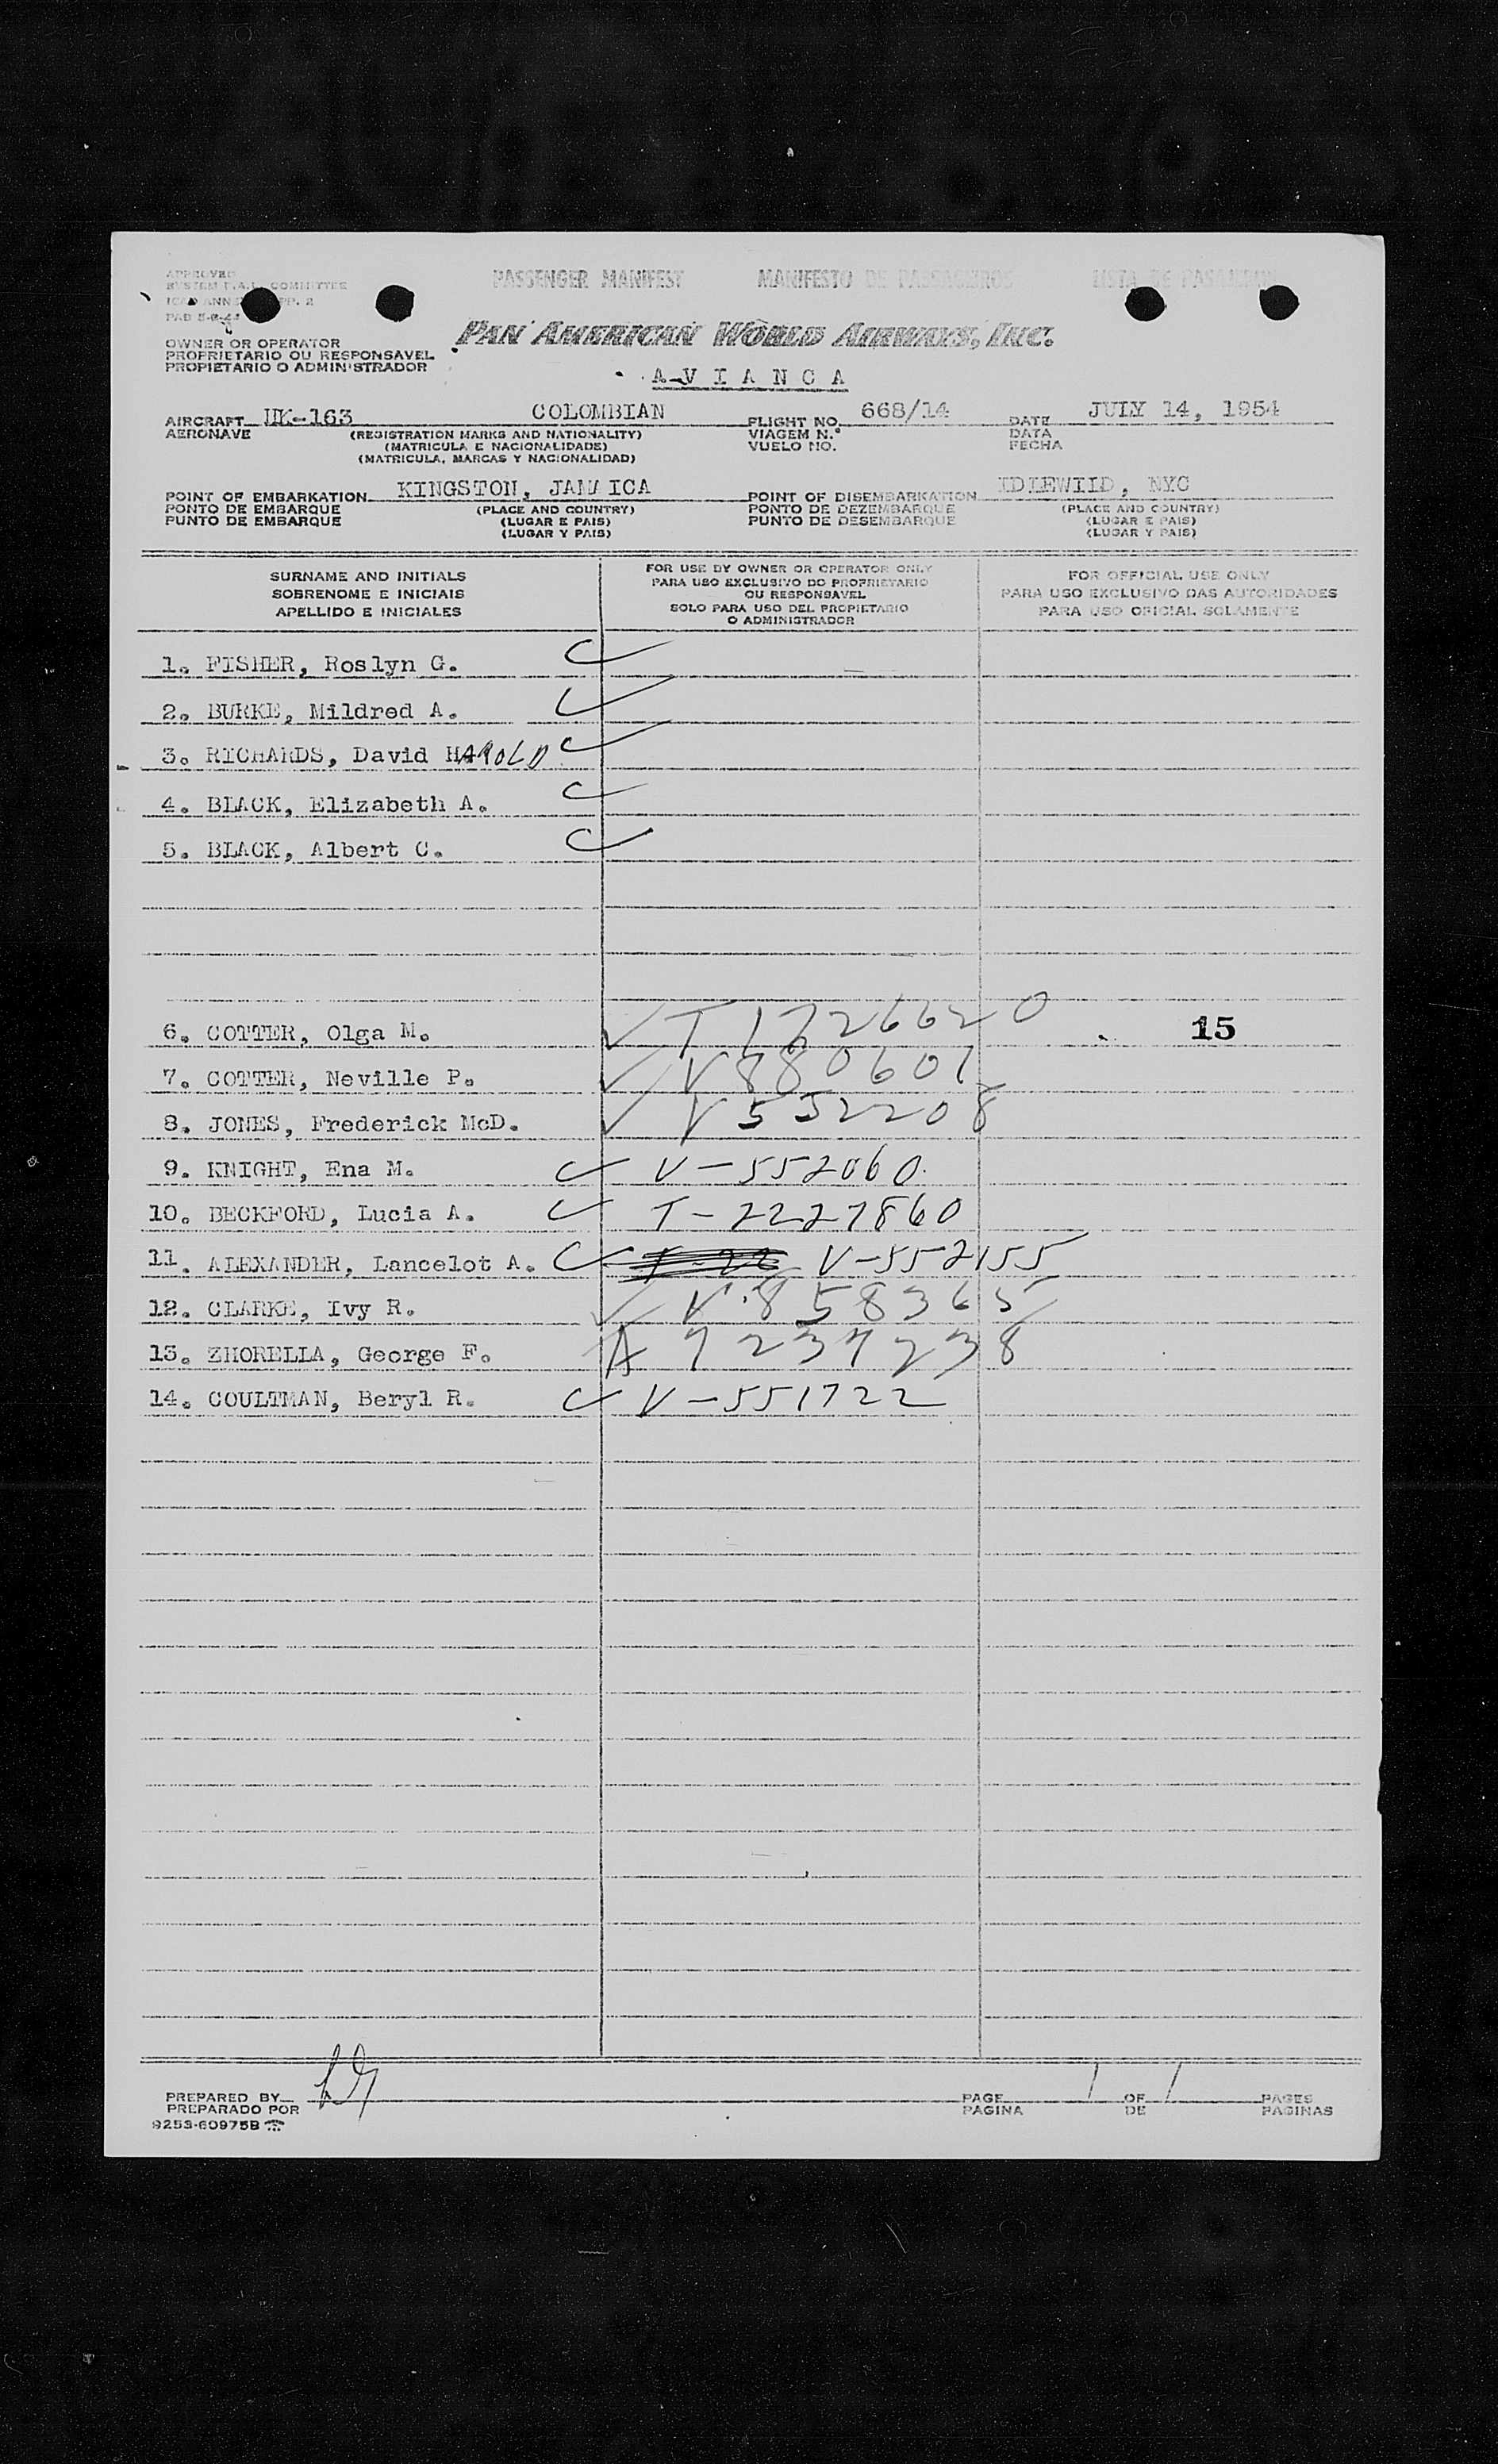 APPROVED PASSENGER MANIFEST MANIFESTO DE PASSAGEIROS LISTA DE PASAJEROS
SYSTEM F.A.L. COMMITTEE
PP. 2
OWNER OR OPERATOR PAN AMERICAN WORLD AIRWAYS, INC.
PROPRIETARIO OU RESPONSAVEL
PROPIETARIO O ADMINISTRADOR
A V I A N C A
AIRCRAFT HK-163 COLOMBIAN FLIGHT NO. 668/14 DATE JULY 14, 1954
AERONAVE (REGISTRATION MARKS AND NATIONALITY) VIAGEM N.º DATA
(MATRICULA E NACIONALIDADE) VUELO NO. FECHA
(MATRICULA, MARCAS Y NACIONALIDAD)
POINT OF EMBARKATION KINGSTON, JAMAICA POINT OF DISEMBARKATION IDLEWILD, NYC
PONTO DE EMBARQUE (PLACE AND COUNTRY) PONTO DE DEZEMBARQUE (PLACE AND COUNTRY)
PUNTO DE EMBARQUE (LUGAR E PAIS) PUNTO DE DESEMBARQUE (LUGAR E PAIS)
(LUGAR Y PAIS) (LUGAR Y PAIS)
SURNAME AND INITIALS
SOBRENOME E INICIAIS
APELLIDO E INICIALES
FOR USE BY OWNER OR OPERATOR ONLY
PARA USO EXCLUSIVO DO PROPRIETARIO
OU RESPONSAVEL
SOLO PARA USO DEL PROPIETARIO
O ADMINISTRADOR
FOR OFFICIAL USE ONLY
PARA USO EXCLUSIVO DAS AUTORIDADES
PARA USO OFICIAL SOLAMENTE
1. FISHER, Roslyn G.
2. BURKE, Mildred A.
3. RICHARDS, David HAROLD
4. BLACK, Elizabeth A.
5. BLACK, Albert C.
6. COTTER, Olga M. T 1726620 15
7. COTTER, Neville P. V 880601
8. JONES, Frederick McD. V 552208
9. KNIGHT, Ena M. V-552060
10. BECKFORD, Lucia A. T-2227860
11. ALEXANDER, Lancelot A. V-552155
12. CLARKE, Ivy R. V.858365
13. ZHORELLA, George F. A 7237238
14. COULTMAN, Beryl R. V-551722
PREPARED BY PAGE 1 OF 1 PAGES
PREPARADO POR PAGINA DE PAGINAS
9253-60975B